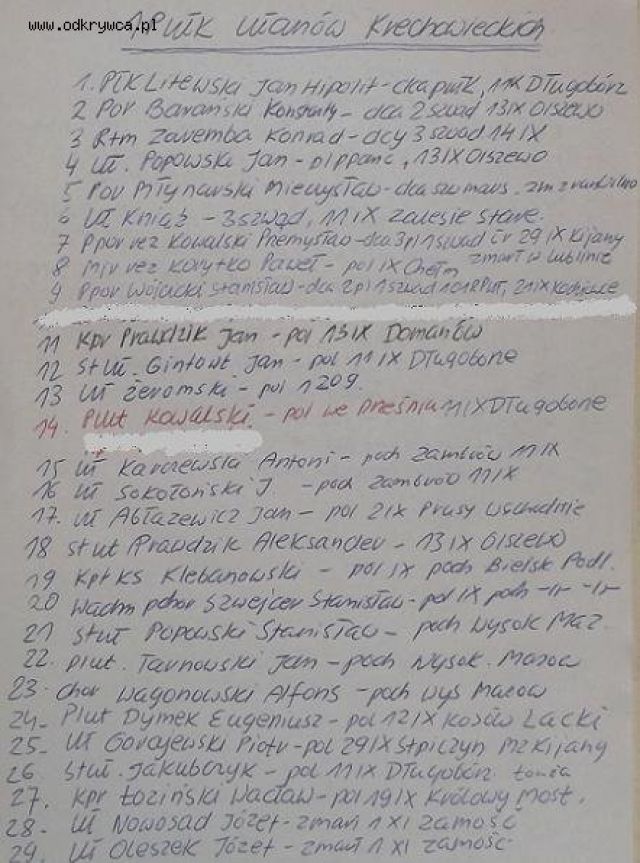 www.odkrywca.pl
1 Pułk Ułanów Krechowieckich
1. Płk Litewski Jan Hipolit - dca pułk, 11 IX Długobórz
2 Por Barański Konstanty - dca 2 szwad 13 IX Olszewo
3 Rtm Zaremba Konrad - dcy 3 szwad 14 IX
4 uł. Popowski Jan - pl ppanc, 13 IX Olszewo
5 Por Młynarski Mieczysław - dca szw mars. zm z ran
6 Uł Kniąź - 3 szwad, 11 IX Zalesie Stare.
7 Ppor rez Kowalski Przemysław - dca 3 pl 1 szwad 29 IX Kijany
8 Mjr rez Korytko Paweł - pol IX Chełm zmarł w Lublinie
9 Ppor Wójcicki Stanisław - dca 2 pl 1 szwad 101 RPUł, 21 IX
11 Kpr Prawdzik Jan - pol 13 IX Domanów
12 St uł. Gintowt Jan - pol 11 IX Długobone
13 uł Żeromski - pol 1209.
14. Plut Kowalski - pol we 11 IX Długobone
15 uł Karczewski Antoni - poch Zambrów 11 IX
16 uł Sokołoński J - poch Zambrów 11 IX
17. uł Abłazewicz Jan - pol 2 IX Prusy Wschodnie
18 st uł Prawdzik Aleksander - 13 IX Olszewo
19 Kpr KS Klebanowski - pol IX poch Bielsk Podl.
20 Wachm pchor Szwejcer Stanisław - pol IX poch -||- -||-
21 st uł Popowski Stanisław - poch Wysok Maz.
22. plut. Tarnowski Jan - poch Wysok. Mazow
23. Chor Wagonowski Alfons - poch Wys Mazow
24 - Plut Dymek Eugeniusz - pol 12 IX Kosów Lacki
25. uł Gorajewski Piotr - pol 29 IX Stpiczyn Mz Kijany
26 St uł. Jakubczyk - pol 11 IX Długobórz. Łomża
27. kpr Łoziński Wacław - pol 19 IX Królowy Most.
28. uł Nowosad Józef - zmarł 1 XI Zamość
29. uł Oleszek Józef - zmarł 1 XI Zamość